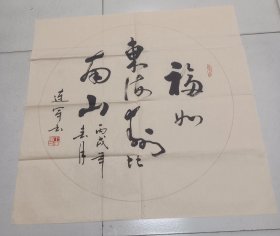 福如
東海壽比
南山
丙戌年
春月
連军书